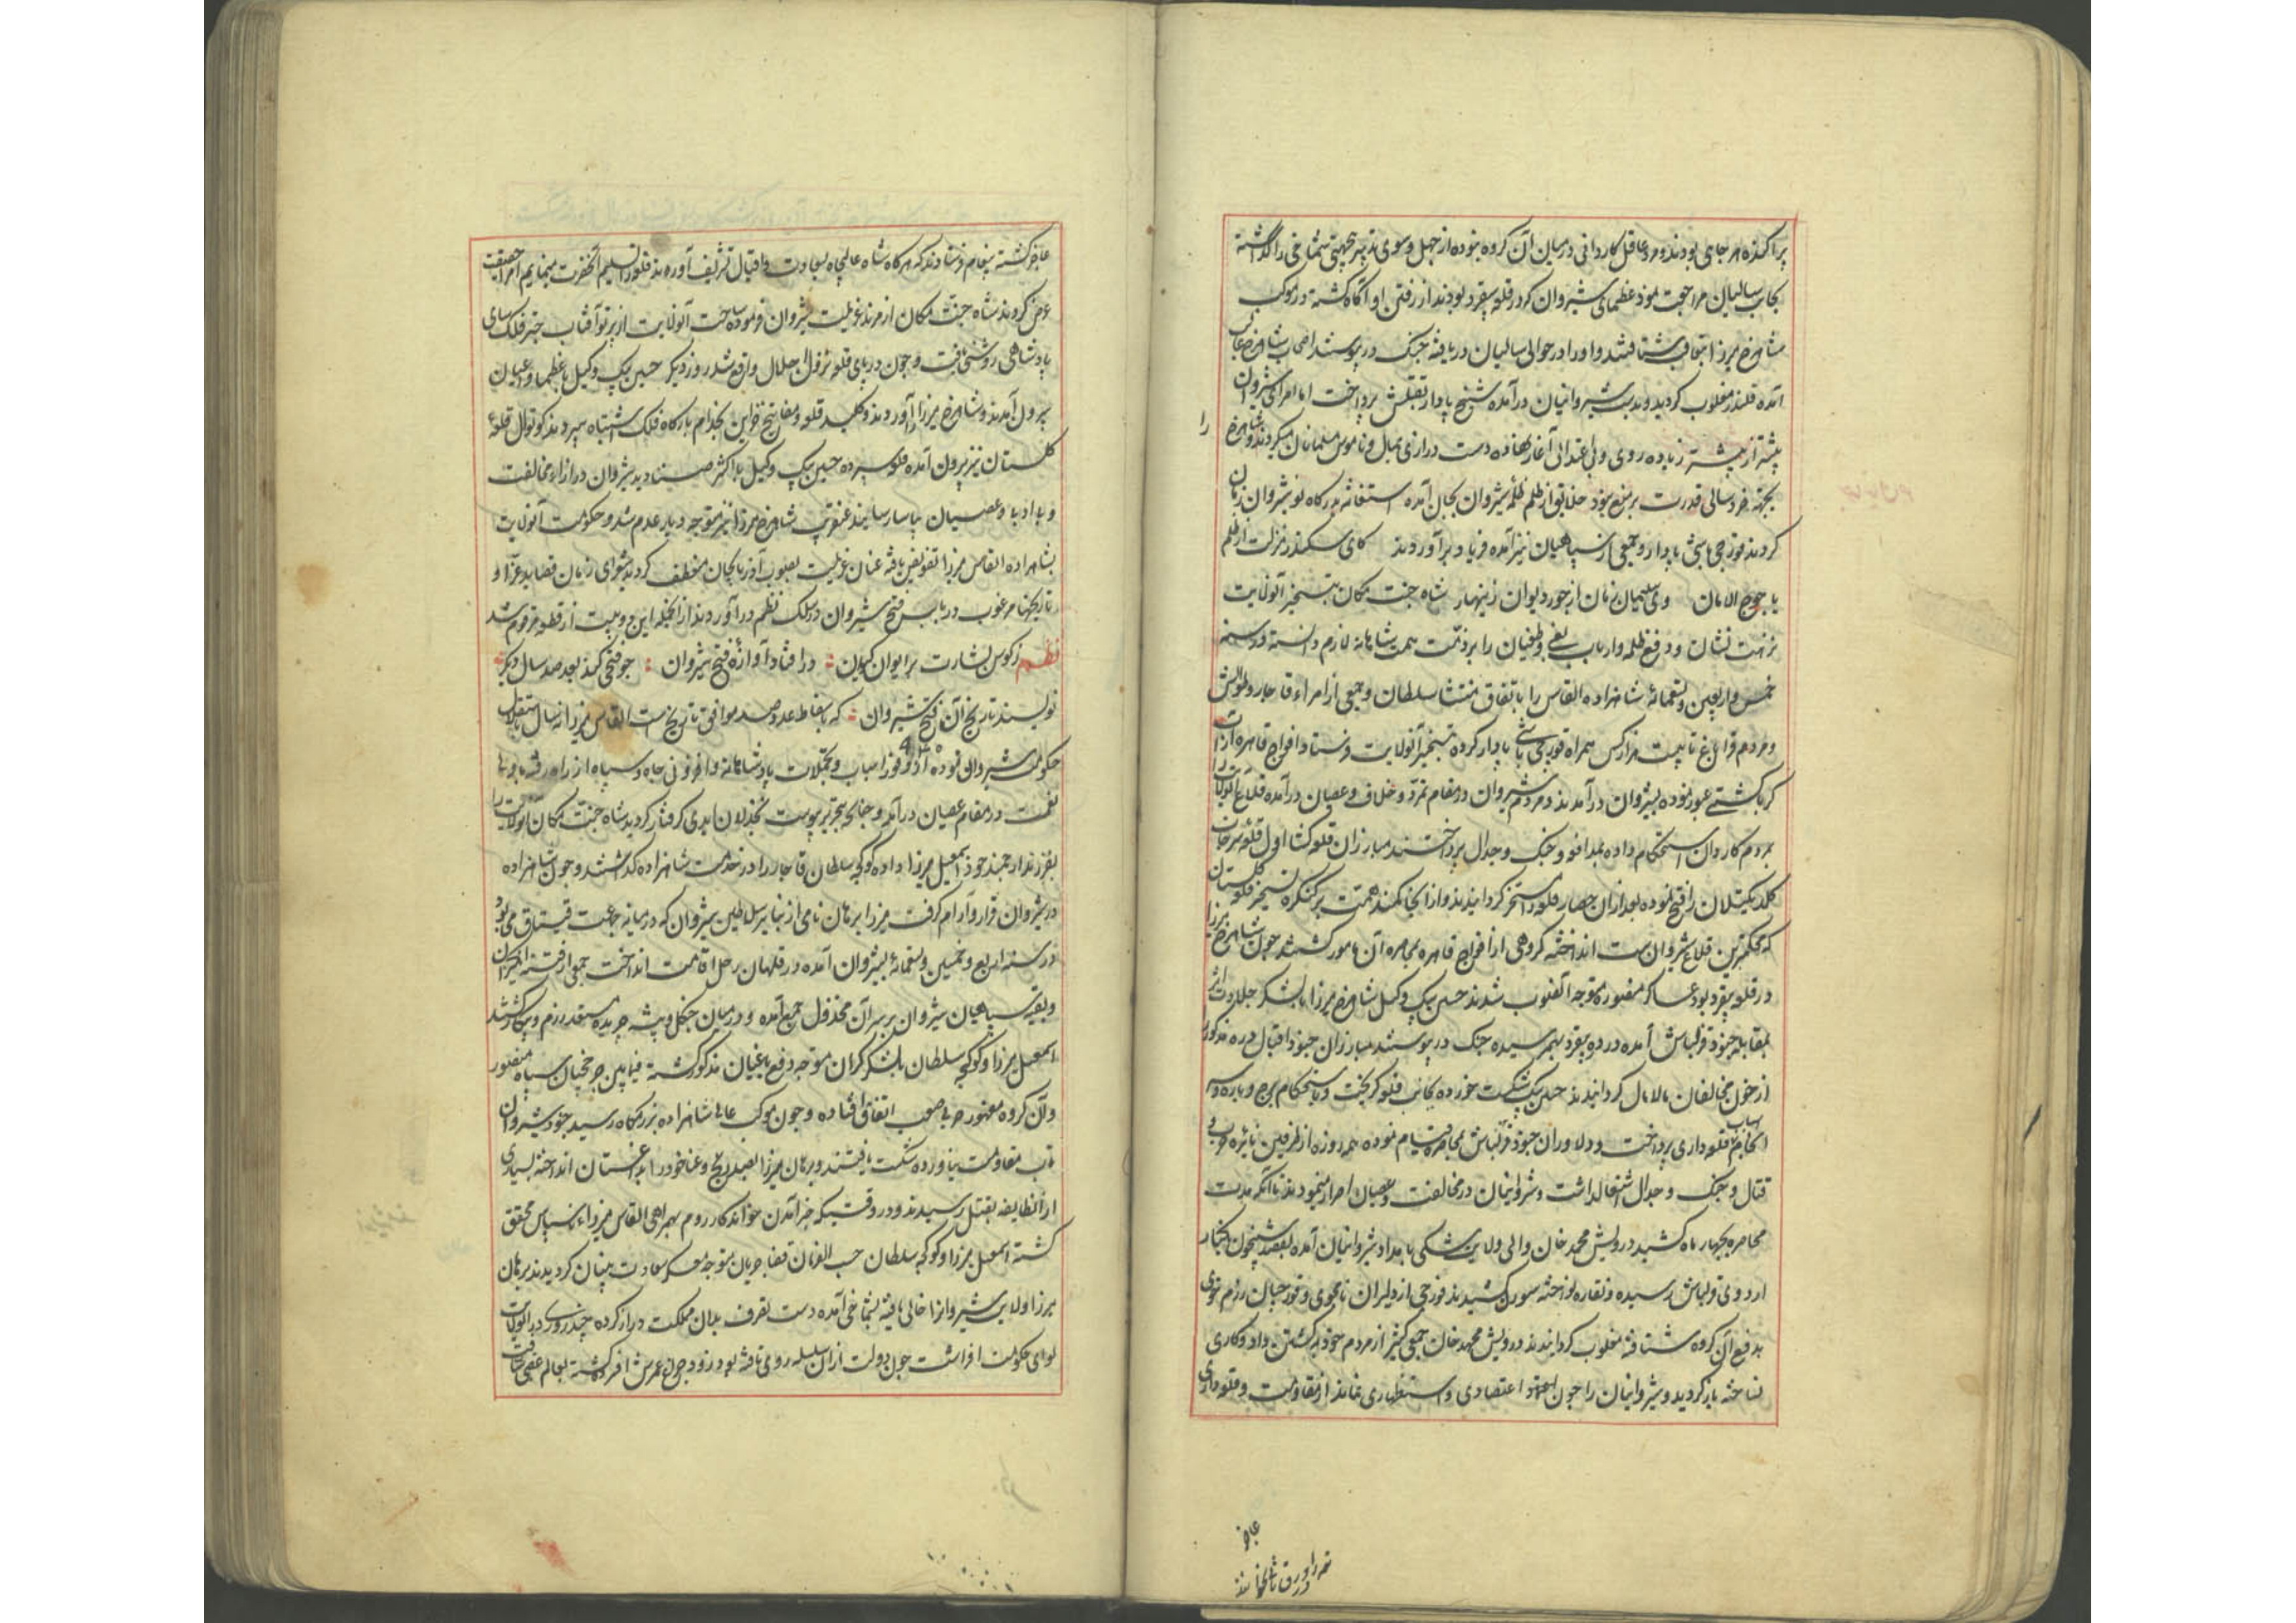 پراکنده هر جای بودند و مرد عاقل کاردانی در میان آن گروه نبوده از جهل و سوی تدبیر بجهتی شماخی را گذاشته
بجانب سالیان مراجعت نمود عظمای شیروان که در قلعه بیقرد بودند از رفتن او آگاه گشته در موکب
شاهرخ میرزا بتعاقب شتافتند و او را در حوالی سالیان دریافته جنگ در پیوستند اصحاب شاهرخ غالب
آمده قلندر مغلوب گردید و بدست شیروانیان درآمده شیخ پادار بقتلش پرداخت اما امرای شیروان
پیشتر از پیشتر زیاده روی و بی اعتدالی آغاز نهاده دست درازی بمال و ناموس مسلمانان میکردند و شاهرخ
را
بجهة خردسالی قدرت بر منع نبود خلایق از ظلم ظلمه شیروان بجان آمده استغاثه بدرگاه نوشیروان زمان
کردند قورچی باشی پادار و جمعی از سپاهیان نیز آمده فریاد برآوردند کای سکندر منزلت از ظلم
یاجوج الامان وی سلیمان زمان از جور دیوان زینهار شاه جنت مکان تسخیر آنولایت
نزهت نشان و دفع ظلمه و ارباب بغی و طغیان را بر ذمت همت شاهانه لازم دانسته در سنه
خمس و اربعین و تسعمائة شاهزاده القاس را باتفاق منتشا سلطان و جمعی از امراء قاجار و طوالش
و مردم قراباغ تا بیست هزار کس همراه قورچی باشی پادار کرده بتسخیر آنولایت فرستاد افواج قاهره از آب
کر بکشتی عبور نموده بشیروان درآمدند و مردم شیروان در مقام تمرد و خلاف و عصیان درآمده قلاع آنولایت را
بمردم کاردان استحکام داده بمدافعه و جنگ و جدال پرداختند مبارزان قلعه کشا اول قلعه سرخاب
را فتح نموده بعد از آن حصار قلعه را مسخر گردانیدند و از آنجا کمند همت بر کنگره تسخیر قلعه گلستان
که محکمترین قلاع شیروانست انداخته گروهی از افواج قاهره بمحاصره آن مامور گشتند چون شاهرخ میرزا
در قلعه بیقرد بود عساکر منصوره متوجه آنصوب شدند حسین بیک وکیل شاهرخ میرزا با لشکر جلادت اثر
بمقابله جنود قزلباش آمده در دره بیقرد بهم رسیده جنگ در پیوستند مبارزان جنود اقبال دره مذکور را
از خون مخالفان مالامال گردانیدند حسین بیک شکست خورده بجانب قلعه گریخت و باستحکام برج و باره و
اسباب قلعه داری پرداخت و دلاوران جنود قزلباش بمحاصره قیام نموده همه روزه از طرفین نائره حرب و
قتال و جنگ و جدال اشتعال داشت و شروانیان در مخالفت و عصیان اصرار مینمودند تا آنکه مدت
محاصره بچهار ماه کشید درویش محمد خان والی ولایت شکی بامداد شروانیان آمده بقصد شبیخون بکنار
اردوی قزلباش رسیده و نقاره نواخته سورن کشیدند فوجی از دلیران نامجوی و قورچیان رزم خوی
بدفع آن گروه شتافته مغلوب گردانیدند درویش محمد خان جمعی کثیر از مردم خود بکشتن داد و کاری
نساخته باز گردید و شیروانیان را چون اعتضادی و استظهاری نماند از مقاومت و قلعه داری
عاجز
عاجز گشته پیغام فرستادند که هرگاه شاه عالیجاه بسعادت و اقبال تشریف آورند قلعه را تسلیم آنحضرت مینمائیم امرا حقیقت
عرض کردند شاه جنت مکان از مرند عزیمت شیروان فرموده ساحت آنولایت از پرتو آفتاب چتر فلک سای
پادشاهی روشنی یافت و چون در پای قلعه نزول اجلال واقع شد روز دیگر حسین بیک وکیل با عظما و اعیان
بیرون آمدند و شاهرخ میرزا را آوردند و کلید قلعه و مفاتیح خزاین بخدام بارگاه فلک اشتباه سپردند کوتوال قلعه
گلستان نیز بیرون آمده قلعه سپرده حسین بیک وکیل با اکثر صنادید شیروان در ازاء مخالفت
و عصیان بیاسا رسانیدند عنقریب شاهرخ میرزا نیز متوجه دیار عدم شد و حکومت آنولایت
بشاهزاده القاس میرزا تفویض یافته عنان عزیمت بصوب آذربایجان منعطف کردند شعرای زمان قصاید غرا و
تاریخهای مرغوب در باب فتح شیروان در سلک نظم درآوردند از آنجمله این دو بیت از قطعه مرقوم شد
نظم ز کوس بشارت بر ایوان کیوان : درافتاد آوازه فتح شیروان : چو فتحی کند بعد صد سال دیگر :
نویسند تاریخ آن فتح شیروان : که باسقاط عدد صد موافق تاریخ است القاس میرزا نه سال باستقلال
حکومت شیروان نموده از وفور اسباب و تجملات پادشاهانه و افزونی جاه و سپاه از راه رفته
نعمت در مقام عصیان درآمد و چنانچه بتحریر پیوست بخذلان ابدی گرفتار گردید شاه جنت مکان آنولایت را
بفرزند ارجمند خود اسمعیل میرزا داده گوگجه سلطان قاجار را در خدمت شاهزاده گذاشتند و چون شاهزاده
در شیروان قرار و آرام گرفت میرزا برهان نامی از نبایر سلاطین شیروان که در میانه جماعت قیتاق می بود
در سنه اربع و خمسین و تسعمائة بشیروان آمده در قلهان رحل اقامت انداخت جمعی از فتنه انگیزان
و بقیه سپاهیان شیروان بر سر آن مخذول جمع آمده و در میان جنگل و بیشه جریده مستعد رزم و پیکار گشتند
اسمعیل میرزا و گوگجه سلطان با لشکر گران متوجه دفع یاغیان مذکور گشته فیمابین چرخچیان سپاه منصور
و آن گروه مقهور حربی صعب اتفاق افتاده و چون موکب عالی شاهزاده بزرمگاه رسید جنود شیروان
تاب مقاومت نیاورده شکست یافتند و برهان میرزا بصد رنج و عنا خود را بداغستان انداخته بسیاری
از آنطایفه بقتل رسیدند و در وقتیکه خبر آمدن خواندکار روم بهمراهی القاس میرزاء ناسپاس محقق
گشته اسمعیل میرزا و گوگجه سلطان حسب الفرمان قضا جریان متوجه معسکر سعادت بنیان گردیدند برهان
میرزا ولایت شیروانرا خالی یافته بشماخی آمده دست تصرف بدان مملکت دراز کرده چند روزی در آنولایت
لوای حکومت افراشت چون دولت از آن سلسله روی تافته بود زود چراغ عمرش افسرده گشته بعالم عقبی شتافت